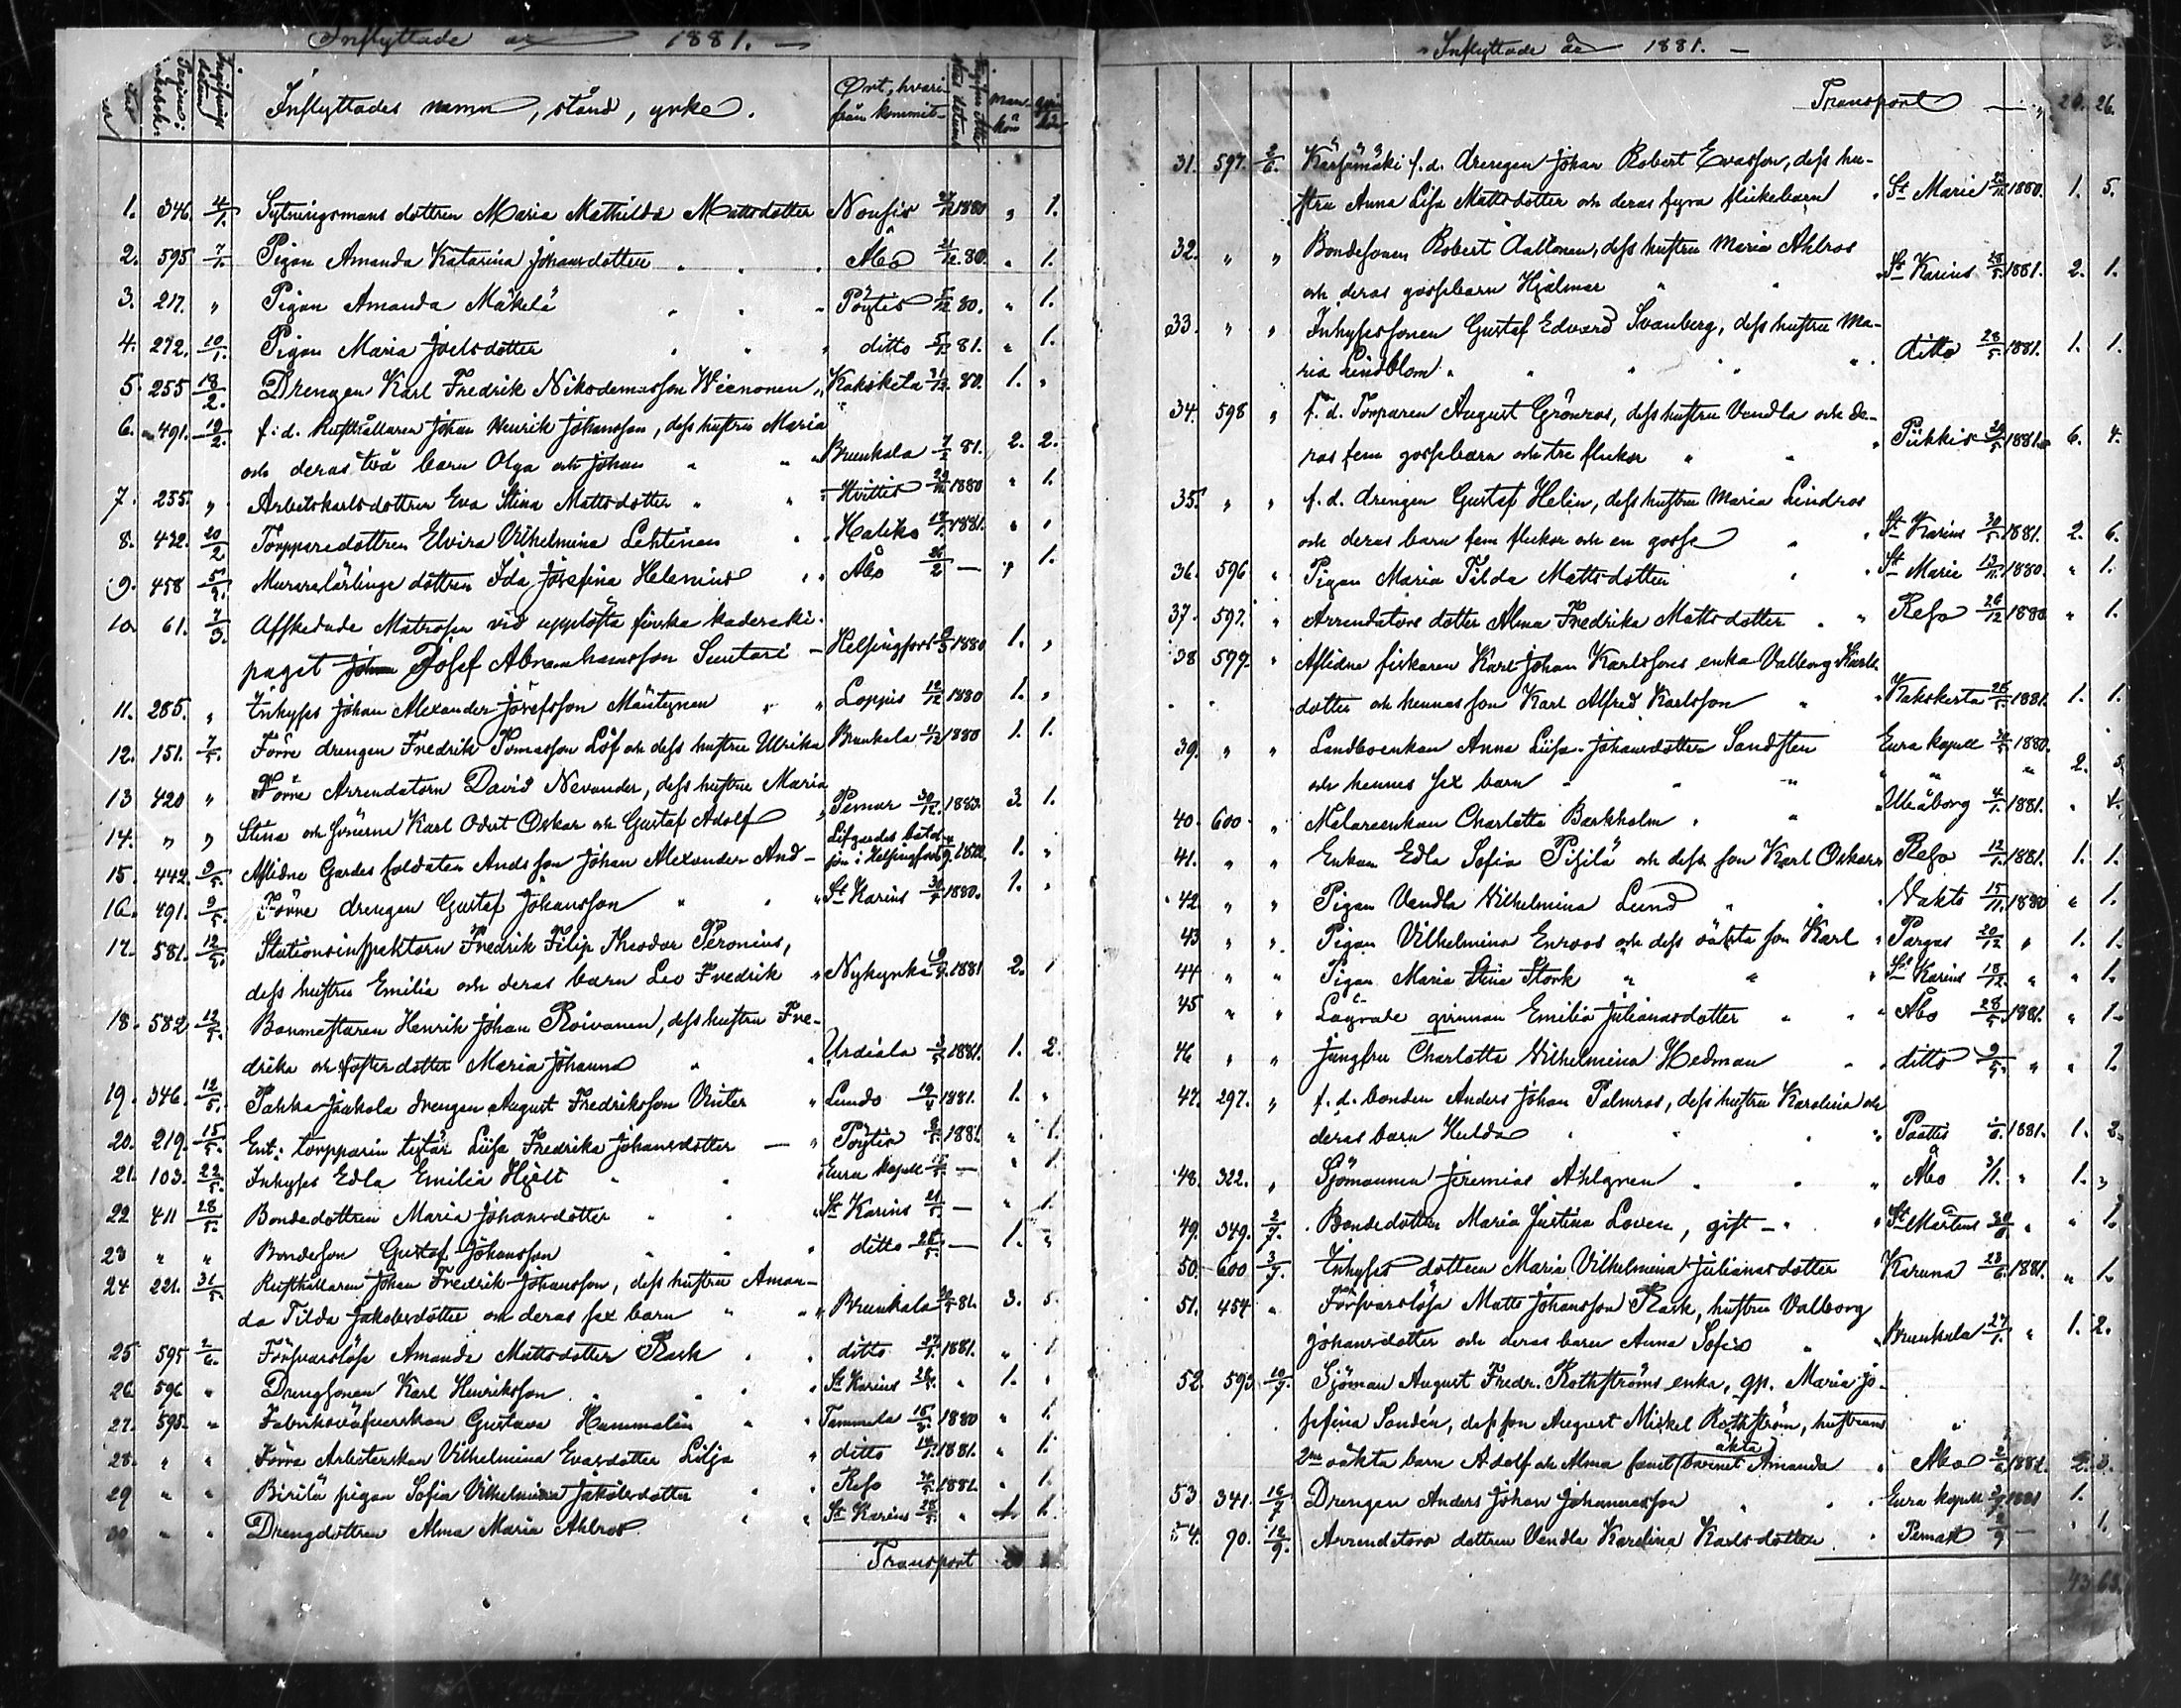 Inflyttade år 1881.
Inflyttades namn, stånd, yrke. Ort, hvarifrån kommit man kön
1. 346 4/1. Sytningsmans dottren Maria Mathilda Mattsdotter Nousis 1880 " 1.
2. 595 7/1. Pigan Amanda Katarina Johansdotter Åbo 80. " 1.
3. 217. " Pigan Amanda Mäkelä Pöytis 5/12 80. " 1.
4. 272. 10/1. Pigan Maria Joelsdotter ditto 81. " 1.
5 255 18/2. Drengen Karl Fredrik Nikodemusson Wienonen Kakskerta 80. 1. "
6. 491. 19/2. f.d. Rusthållaren Johan Henrik Johansson, dess hustru Maria
och deras två barn Olga och Johan Brunkala 81. 2. 2.
7. 255. " Arbetskarlsdottren Eva Stina Mattsdotter Hvittis 1880 " 1.
8. 432. 20/2 Torpparedottren Elvira Vilhelmina Lehtinen Haliko 1881. " "
9. 458 Murarelärlings dottren Ida Josefina Helenius Åbo — " 1.
10. 61. 7/3. Afskedade Matrosen vid upplösta finska kaderäki-
paget Josef Abrahamsson Suutari Helsingfors 1880 1. "
11. 285. " Inhyses Johan Alexander Josefsson Mäntynen Loppis 1880 1. "
12. 151. 7/5. Förre drengen Fredrik Tomasson Löf och dess hustru Ulrika Brunkala 1880 1. 1.
13 420 " Förre Arrendatorn David Nevander, dess hustru Maria
14. " " Stina och sönerna Karl Odert Oskar och Gustaf Adolf Pemar 3. 1.
15. 442. 9/5. Aflidne Gardes soldaten Andsson Johan Alexander And- Lifgardes bataljon i Helsingfors 1. "
16. 491. 9/5. Förre drengen Gustaf Johansson St Karins 1880. 1. "
17. 581. 12/5. Stationsinspektorn Fredrik Filip Theodor Peronius,
dess hustru Emilia och deras barn Leo Fredrik Nykyrka 1881 2. 1
18. 582 12/5. Banmästaren Henrik Johan Roivanen, dess hustru Fre-
drika och fosterdotter Maria Johanna Urdiala 1881. 1. 2.
19. 346. 12/5. Pahka Jaakola drengen August Fredriksson Vinter Lundo 1881. 1. "
20. 219. 15/5. Ent. torpparin tytär Liisa Fredrika Johansdotter — Pöytis 1881. " 1.
21. 103. 22/5. Inhyses Edla Emilia Hjelt Eura kapell — " 1.
22 411 28/5. Bondedottren Maria Johansdotter St Karins — " 1.
23 " " Bondeson Gustaf Johansson ditto — 1. "
24 221. 31/5. Rusthållaren Johan Fredrik Johansson, dess hustru Aman-
da Tilda Jakobsdotter och deras sex barn Brunkala 81. 3. 5.
25 595 2/6. Försvarslösa Amanda Mattsdotter Rask ditto 1881. " 1
26 596 " Drengsonen Karl Henriksson St Karins " 1. "
27. 595. " Fabriksväfverskan Gustava Hammalin Tammela 1880 " 1.
28. " " Förra Arbeterskan Vilhelmina Evasdotter Lilja ditto 1881. " 1.
29 " " Birilä pigan Sofia Vilhelmina Jakobsdotter Reso 1881. " 1.
30 " " Drengdottren Alma Maria Ahlros St Karins " 1.
Transport
Inflyttade år 1881.
Transport — " 20. 26.
31. 597. 2/6. Kärsämäki f.d. drengen Johan Robert Evasson, dess hu-
stru Anna Lisa Mattsdotter och deras fyra flickebarn St Marie 1880. 1. 5.
32. " " Bondesonen Robert Aaltonen, dess hustru Maria Ahlros
och deras gossebarn Hjalmar St Karins 28/5 1881. 2. 1.
33. " " Inhysessonen Gustaf Edvard Svanberg, dess hustru Ma-
ria Lindblom ditto 28/5 1881. 1. 1.
34. 598 " f.d. Torparen August Grönros, dess hustru Vendla och de-
ras fem gossebarn och tre flickor Piikkis 1881. 6. 4.
35. " " f.d. drengen Gustaf Helin, dess hustru Maria Lindros
och deras barn fem flickor och en gosse St Karins 30/5 1881. 2. 6.
36. 596 " Pigan Maria Tilda Mattsdotter St Marie 13/11 1880. " 1.
37. 597. " Arrendators dotter Alma Fredrika Mattsdotter Reso 26/12 1880 " 1.
38 599. " Aflidne fiskaren Karl Johan Karlssons enka Valborg Karls-
dotter och hennes son Karl Alfred Karlsson Kakskerta 1881. 1. 1.
39. " " Landboenkan Anna Liisa Johansdotter Sandsten Eura kapell 1880.
och hennes sex barn " " 2. 5.
40. 600 " Målareenkan Charlotta Barkholm Uleåborg 4/1. 1881. " 1.
41. " " Enkan Edla Sofia Pisilä och dess son Karl Oskar Reso 12/1. 1881. 1. 1.
42 " " Pigan Vendla Vilhelmina Lund Nakto 15/11. 1880 " 1.
43 " " Pigan Vilhelmina Enroos och dess oäkta son Karl Pargas 20/12 " 1. 1.
44 " " Pigan Maria Stina Stork St Karins 18/12. " " 1.
45 " " Lagvade qvinnan Emilia Julianasdotter Åbo 28/5. 1881. " 1.
46 " " Jungfru Charlotta Vilhelmina Hedman ditto 9/5. " " 1.
47. 297. " f.d. bonden Anders Johan Palmros, dess hustru Karolina och
deras barn Hulda Paattis 1881. 1. 2.
48. 322. " Sjömannen Jeremias Ahlgren Åbo " 1. "
49. 349. 2/7. Bondedotter Maria Justina Loven, gift St Mårtens " " 1.
50. 600 3/7. Inhyses dottren Maria Vilhelmina Julianasdotter Karuna 23/6. 1881. " 1.
51. 454 " Försvarslösa Matts Johansson Rask, hustru Valborg
Johansdotter och deras barn Anna Sofia Brunkala " 1. 2.
52. 595 10/7. Sjöman August Fredr. Rothströms enka, gp. Maria Jo-
sefina Sandén, dess son August Mickel Rothström, hustruns
2ne oäkta barn Adolf och Alma samt äkta barnet Amanda Åbo 1881. 2. 3.
53 341. 16/7 Drengen Anders Johan Johannesson Eura kapell 1881 1.
54. 90. 12/9. Arrendators dottren Vendla Karolina Karlsdotter Pemar — " 1.
43 63.